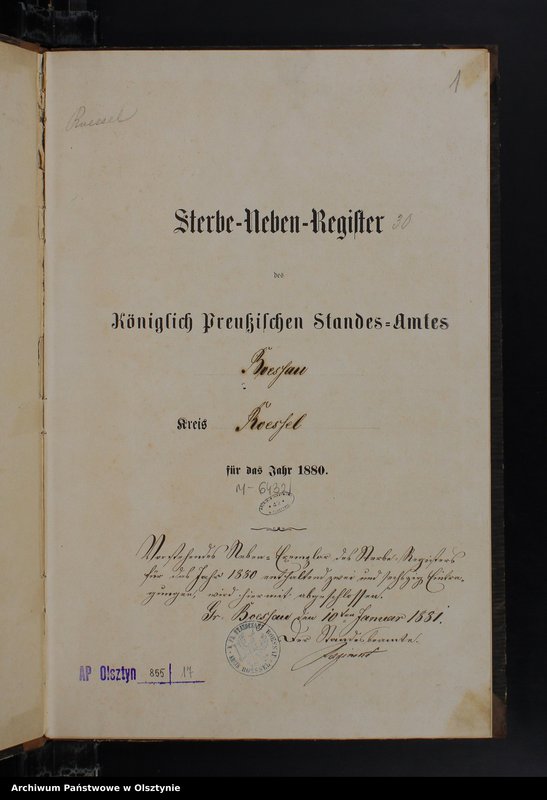 1
Roessel
Sterbe-Neben-Register 30
des
Königlich Preußischen Standes-Amtes
Boessau
Kreis Roessel
für das Jahr 1880.
M-643/2
Vorstehendes Neben-Exemplar des Sterbe-Registers
für das Jahr 1880 enthaltend zwei und sechszig Eintra-
gungen wird hiermit abgeschlossen.
Gr. Boessau den 10ten Januar 1881.
Der Standesbeamte.
AP Olsztyn 855 17
Archiwum Państwowe w Olsztynie